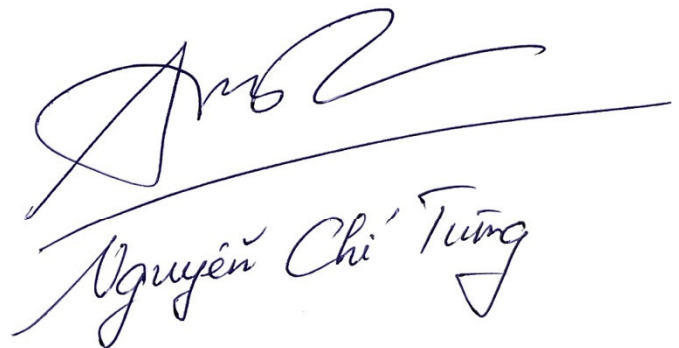 Nguyễn Chí Tùng